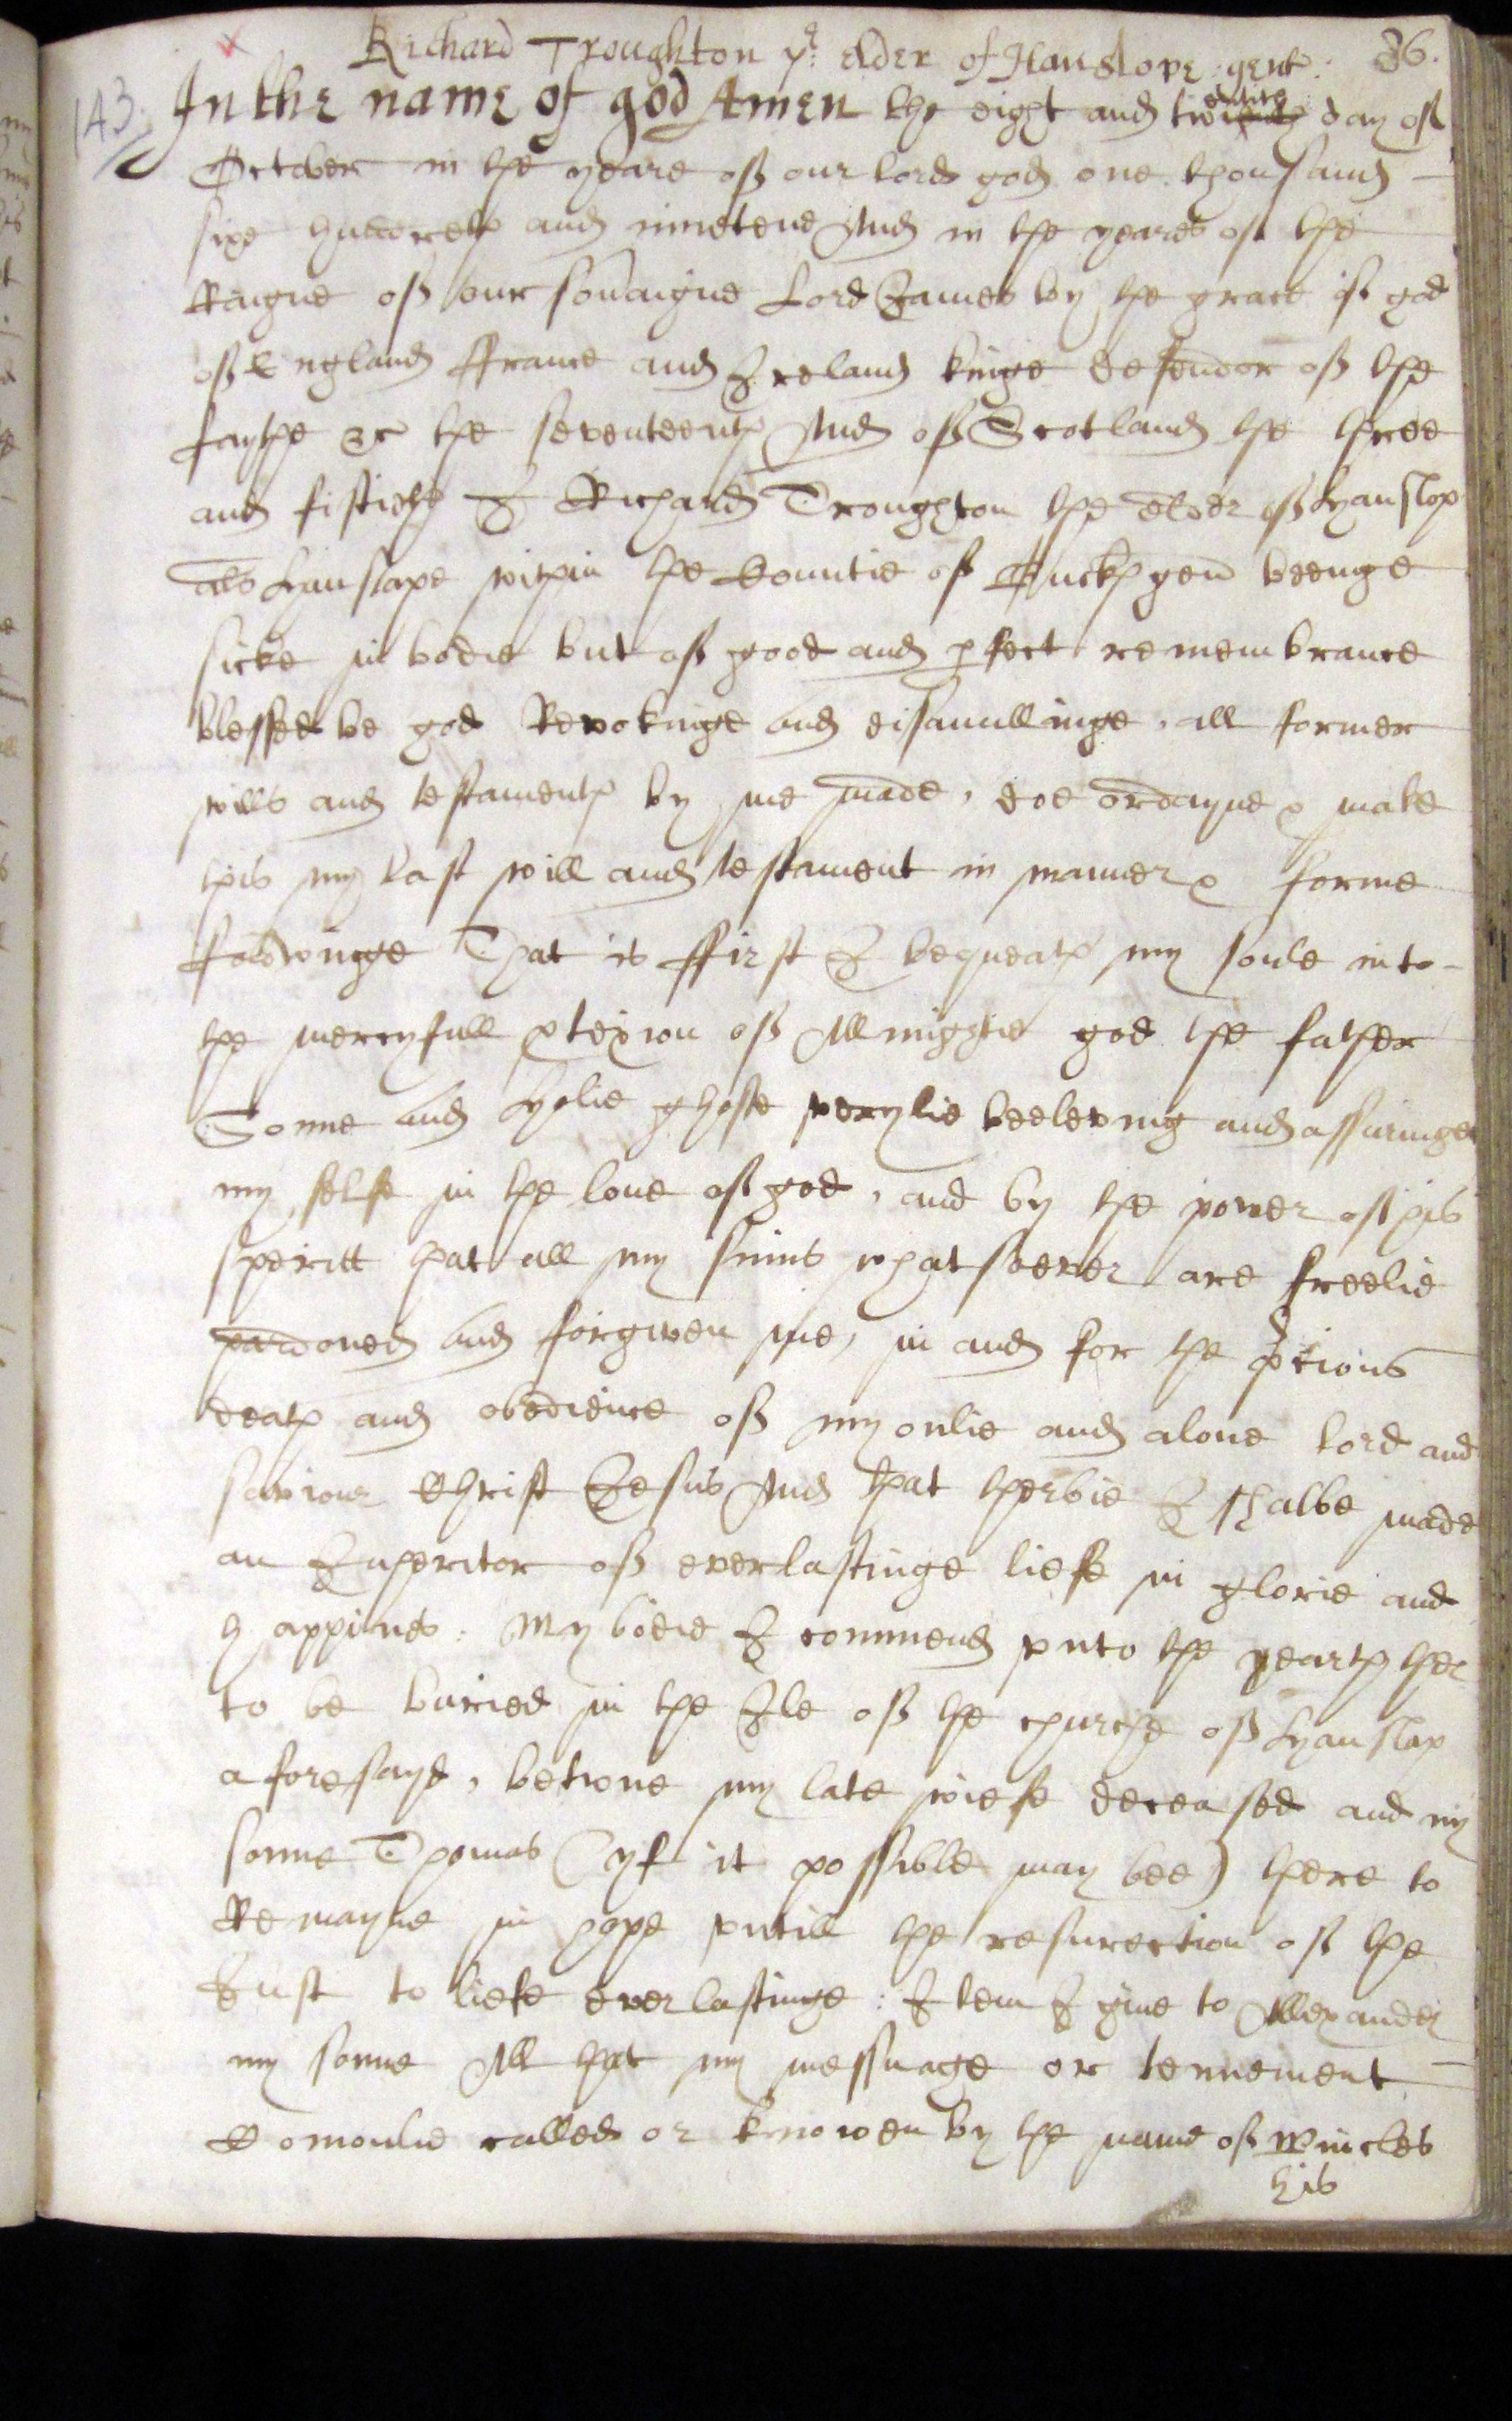 Richard Troughton ye elder of Hanslope gent. 36.
143. In the name of god Amen the eight and twentith day of
October in the yeare of our lord god one thousand
sixe hundreth and ninetene And in the yeares of the
Raigne of our sovaigne Lord James by the grace of god
of England ffrance and Ireland kinge defendor of the
faythe &c the seventeenth And of Scotland the three
and fiftieth I Richard Troughton the elder of Hanslop
als Hanslape within the Countie of Buck gen beenge
sicke in bodie but of good and pfect remembrance
blessed be god Revokinge and disanullinge, all former
wills and testaments by me made, doe ordayne & make
this my last will and testament in manner & forme
followinge That is ffirst I bequeath my soule into
the mercyfull ptexion of Allmightie god the father
Sonne and Holie ghoste verylie beeleving and assuringe
my selfe in the love of god, and by the power of his
speritt that all my sinns whatsoever are freelie
pardoned and forgiven me, in and for the ptious
death and obedience of my onlie and alone lord and
saviour Christ Jesus And that therbie I shalbe made
an Inheritor of everlastinge liefe in glorie and
happines: My bodie I commend unto the yearth ther
to be buried in the Ile of the churche of Hanslap
aforesayd, betwne my late wiefe deceased and my
sonne Thomas (yf it possible may bee) there to
Remayne in hope untill the resurection of the
Just to liefe everlastinge: Item I give to Allexander
my sonne All that my messuage or tennement
Comonlie called or knowen by the name of Wincles
his